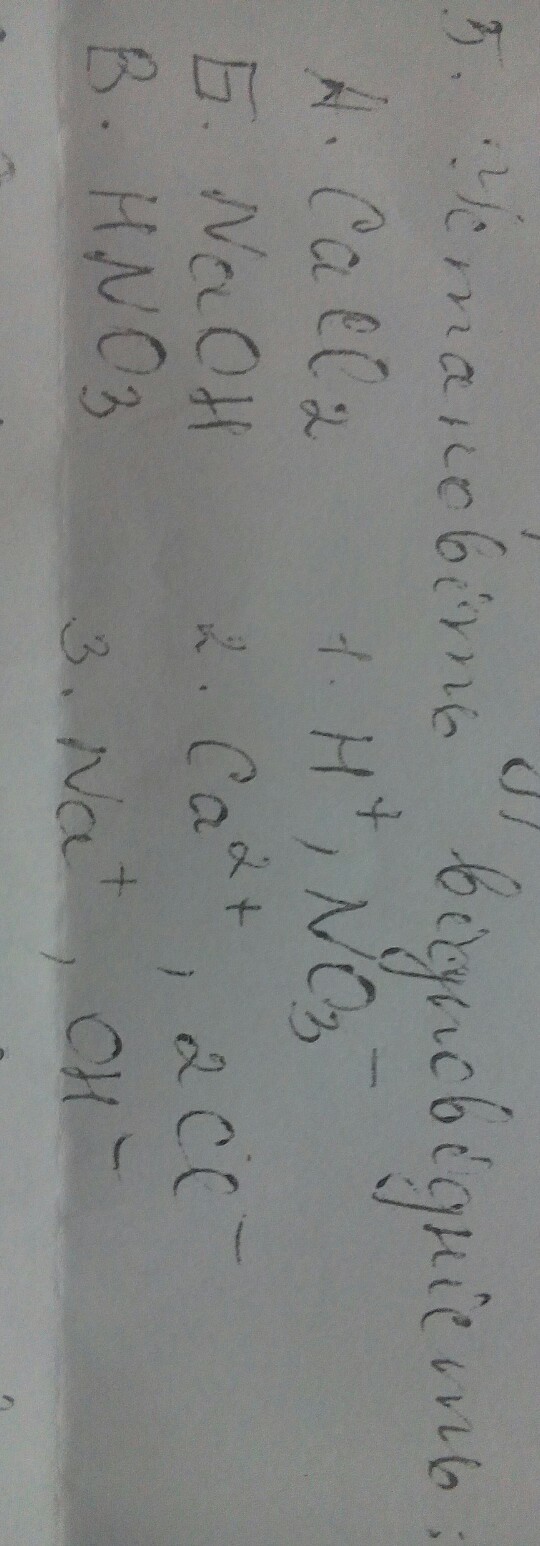 5. Установіть відповідність:
А. CaCl2 1. H+, NO3-
Б. NaOH 2. Ca2+, 2Cl-
В. HNO3 3. Na+, OH-